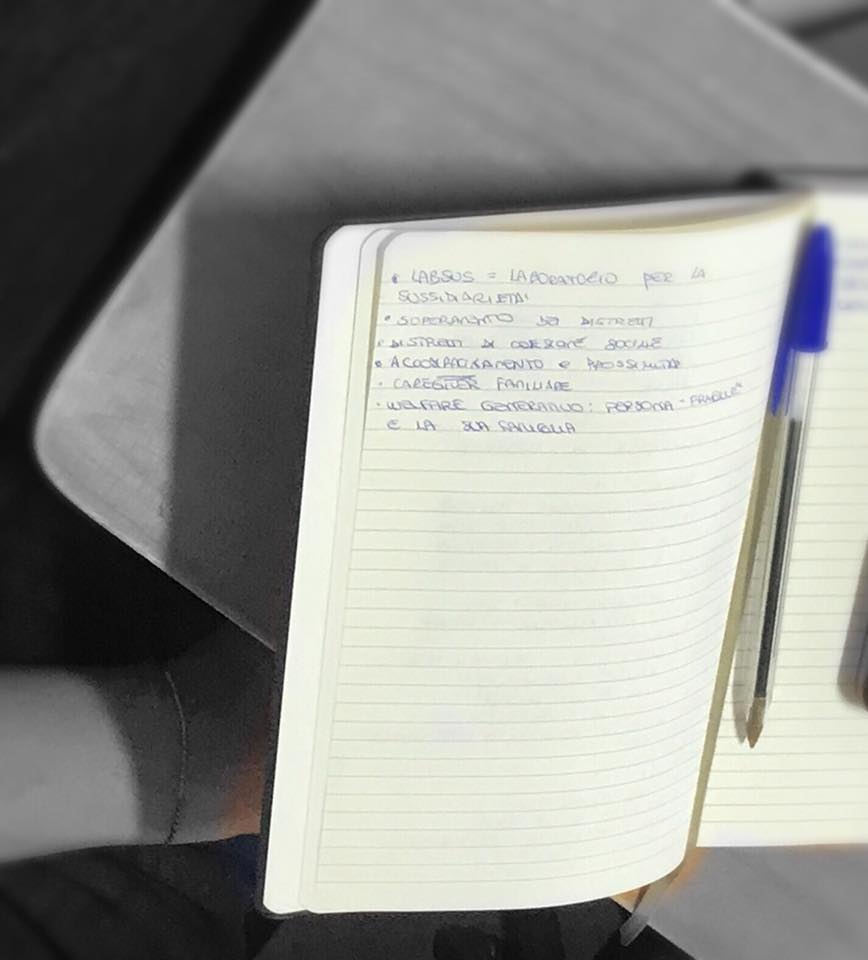 • LABSUS = LABORATORIO PER LA
SUSSIDIARIETA'
• SUPERAMENTO DEI DISTRETTI
• DISTRETTI DI COESIONE SOCIALE
• ACCOMPAGNAMENTO E PROSSIMITÀ
• CAREGIVER FAMILIARE
• WELFARE GENERATIVO: PERSONA "FRAGILE"
E LA SUA FAMIGLIA